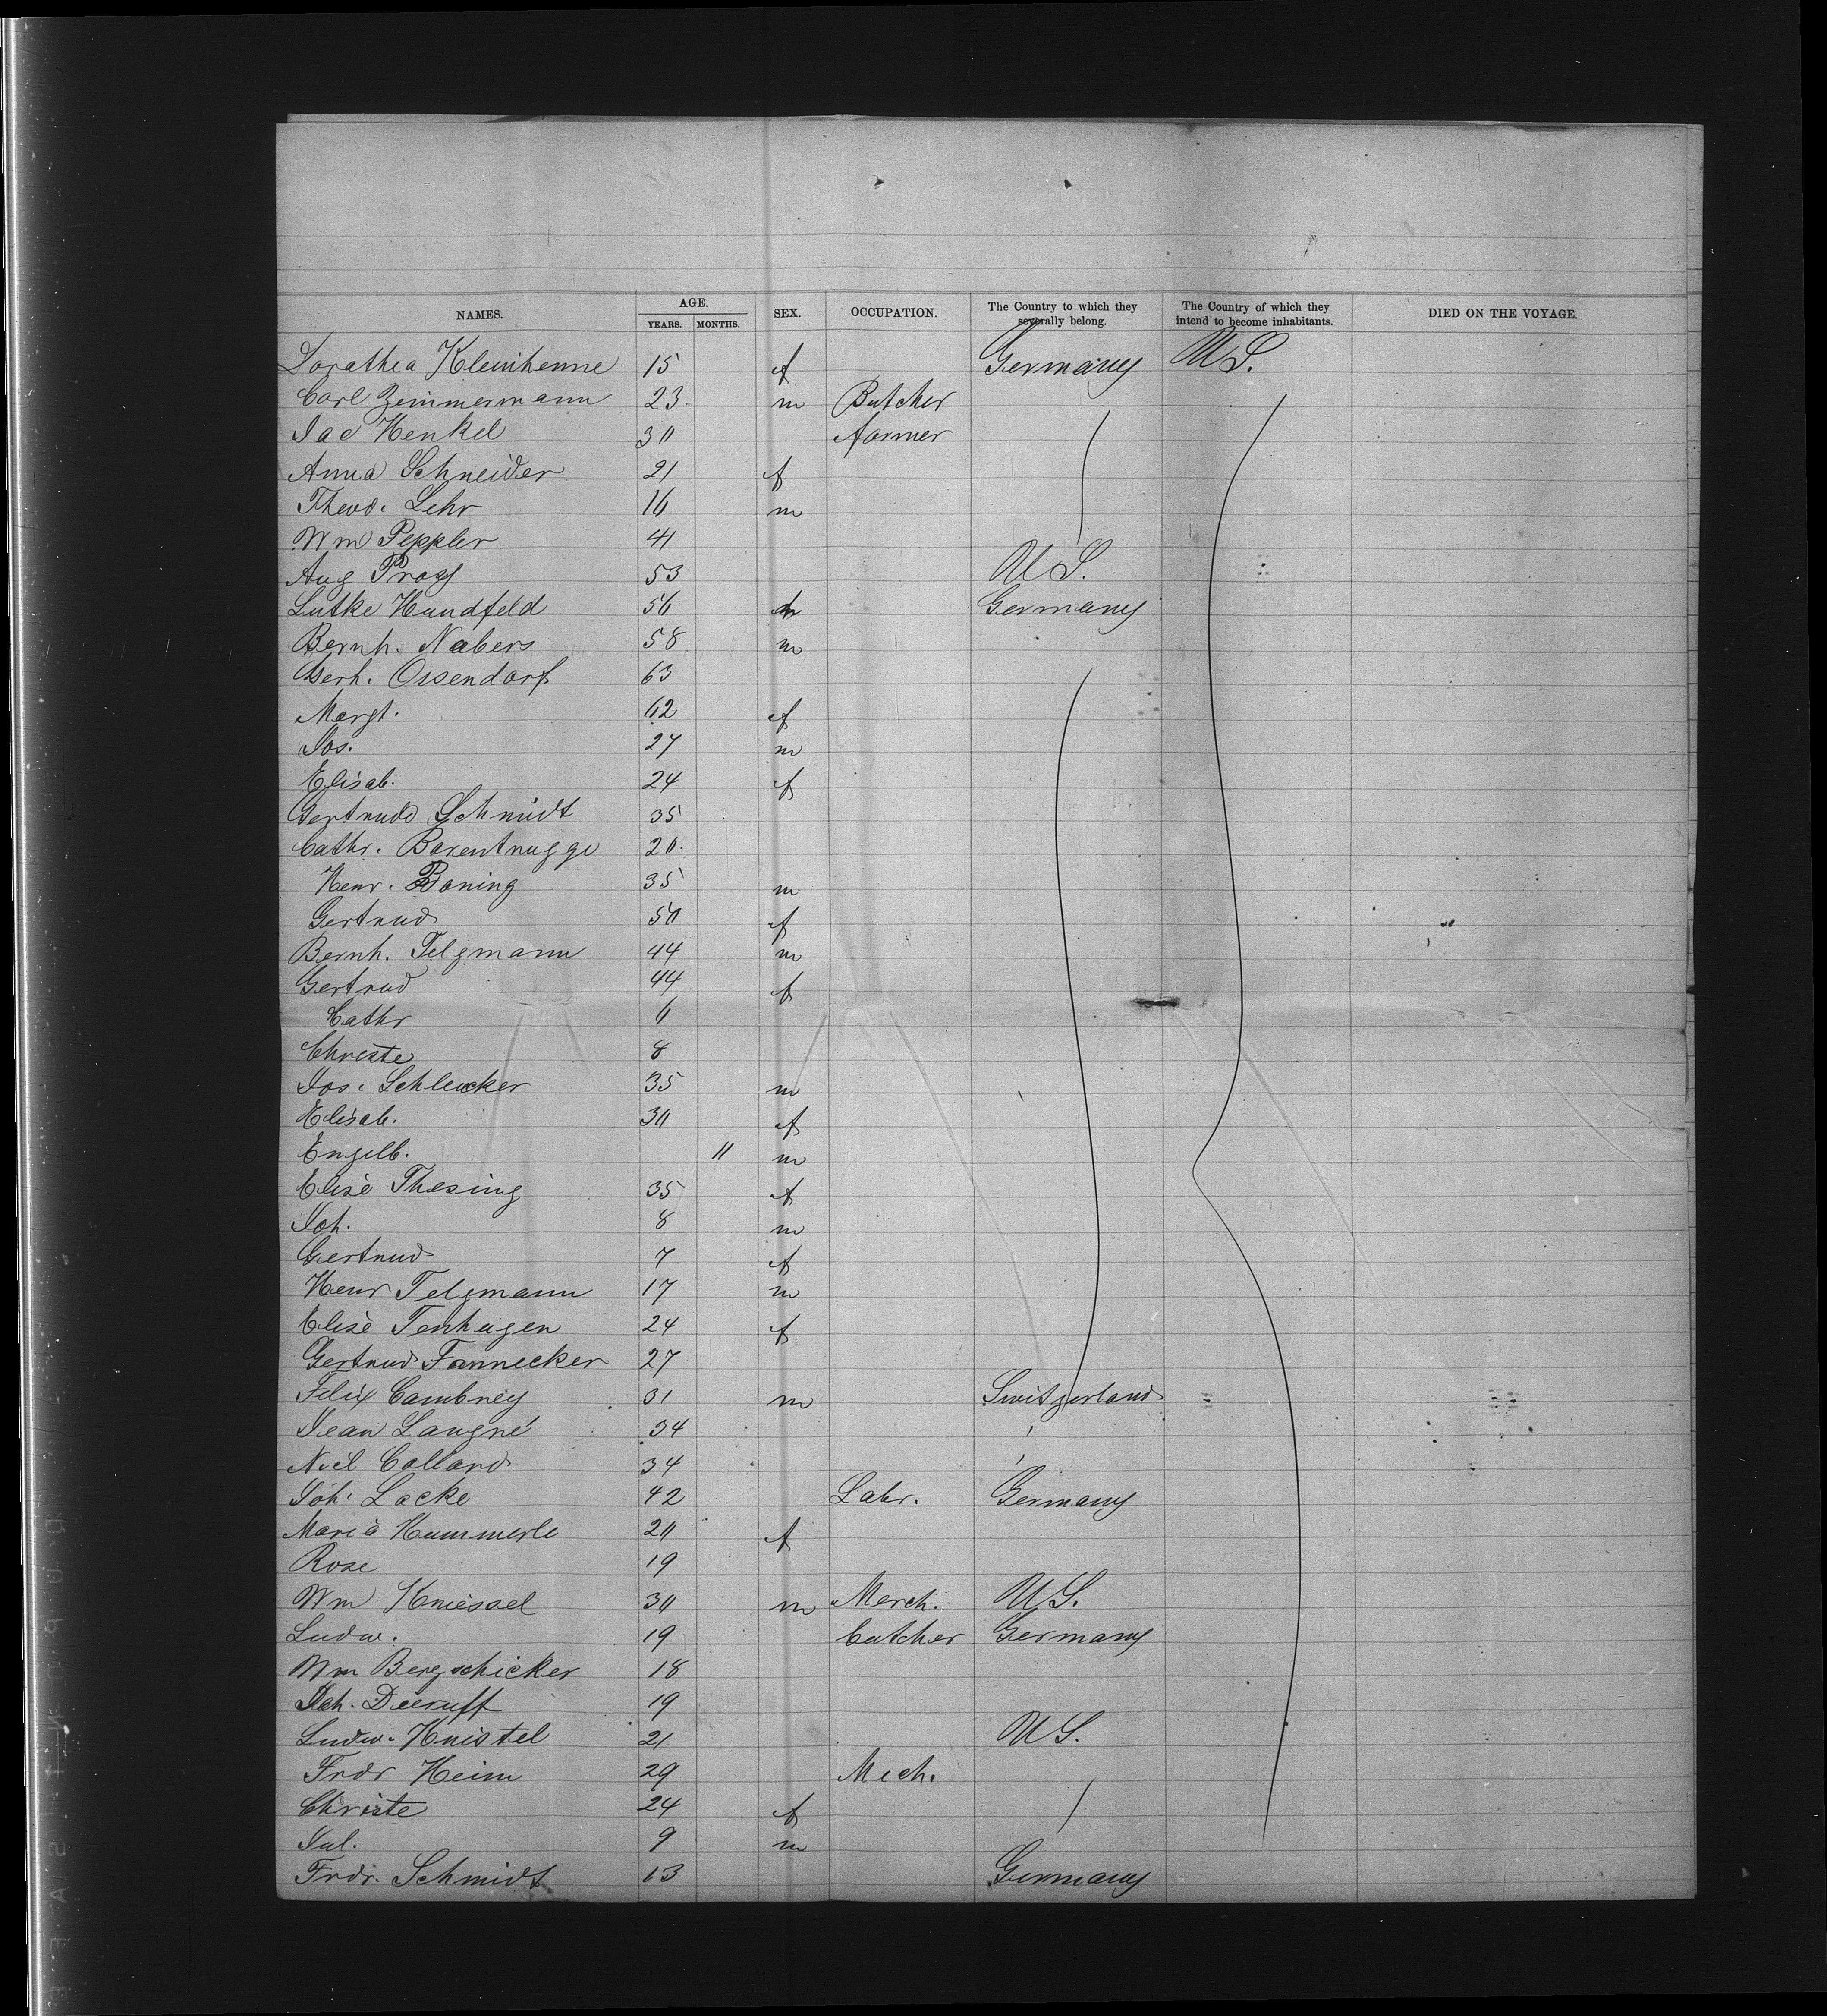 NAMES. AGE. YEARS. MONTHS. SEX. OCCUPATION. The Country to which they severally belong. The Country of which they intend to become inhabitants. DIED ON THE VOYAGE.
Dorathea Kleinhenne 15 f Germany U S.
Carl Zimmermann 23 m Butcher
Jac Henkel 30 farmer
Anna Schneider 21 f
Theod. Lehr 16 m
Wm Peppler 41
Aug 53 U S.
Lutke Hundfeld 56 Germany
Bernh. Nabers 58 m
Gerh. Ossendorf 63
Margt. 62 f
Jos. 27 m
Elisab. 24 f
Gertrude Schmidt 35
Cathr. Barentrugge 20
Henr. Boning 35 m
Gertrud 50 f
Bernh. Telgmann 44 m
Gertrud 44 f
Cathr 6
Christe 8
Jos. Schlencker 35 m
Elisab. 30 f
Engelb. 11 m
Elise Thesing 35 f
Joh. 8 m
Gertrud 7 f
Henr Telgmann 17 m
Elise Tenhagen 24 f
Gertrud Fannecker 27
Felix Cambrey 31 m Switzerland
Jean Laugné 34
Noel Collard 34
Joh. Lacke 42 Labr. Germany
Maria Hummerle 20 f
Rose 19
Wm Kniessel 30 m Merch. U S.
Ludw. 19 Butcher Germany
Wm Bergschicker 18
Joh. Deeruff 19
Ludw. Knistel 21 U S.
Frdr Heim 29 Mech.
Christe 24 f
Jul. 9 m
Frdr. Schmidt 13 Germany